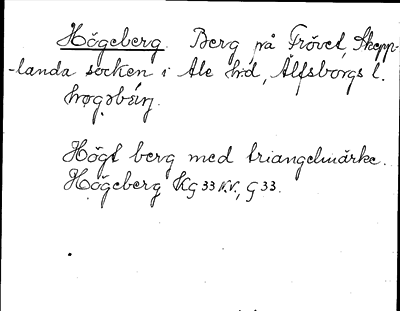 Högeberg. Berg på Frövet, Skepp-
-landa socken i Ale hd, Älfsborgs l.
Högt berg med triangelmärke.
Högeberg KG 33 N.V., G 33.